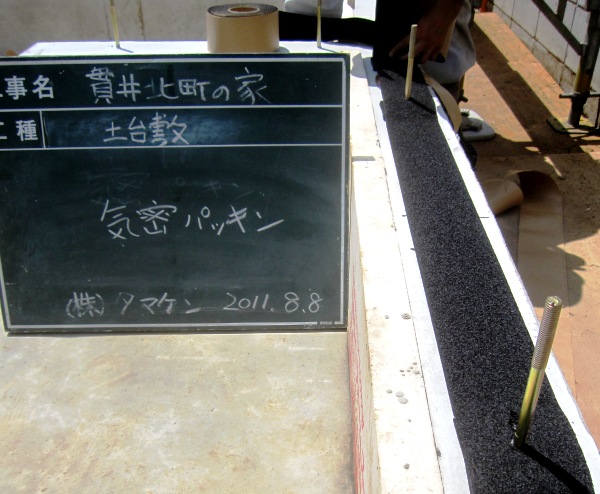 工事名 貫井北町の家
工種 土台敷
気密パッキン
(株)タマケン 2011.8.8